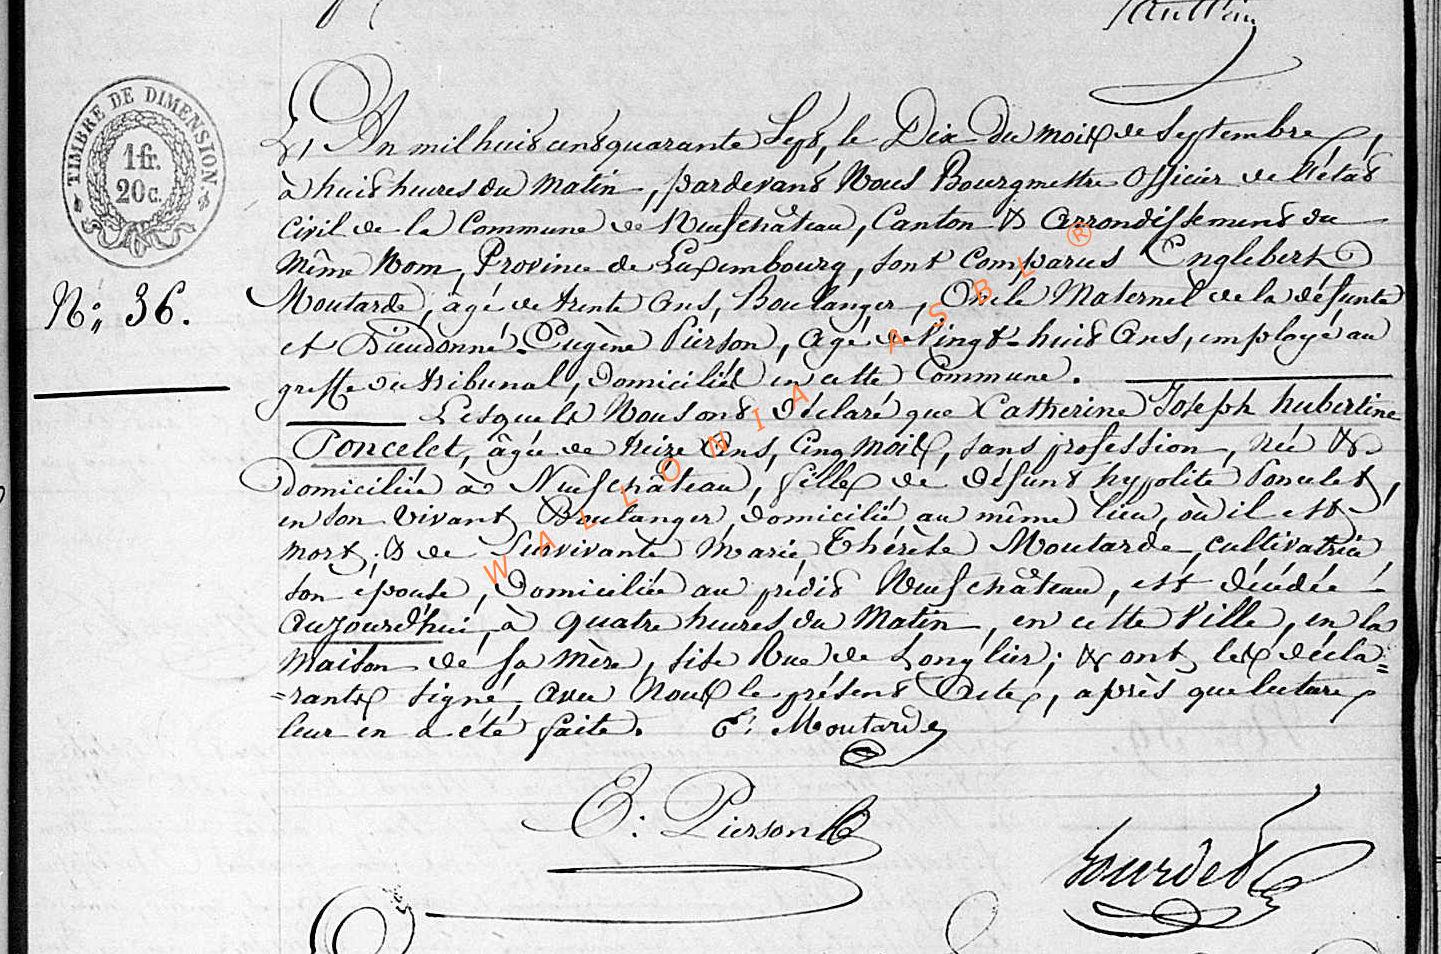 TIMBRE DE DIMENSION.
1 fr.
20 c.
N° 36.
L'An mil huit cent quarante Sept, le Dix du mois de Septembre,
à huit heures du Matin, pardevant Nous Bourgmestre Officier de l'état
Civil de la Commune de Neufchâteau, Canton & Arrondissement du
Même Nom, Province de Luxembourg, sont comparus Englebert
Moutarde, âgé de trente Ans, Boulanger, Oncle Maternel de la défunte
et Dieudonné-Eugène Pierson, Agé de Vingt-huit Ans, employé au
greffe du tribunal, domiciliés en cette Commune.
Lesquels Nous ont déclaré que Catherine Joseph hubertine
Poncelet, âgée de treize Ans, Cinq mois, sans profession, née &
domiciliée à Neufchâteau, fille de défunt hypolite Poncelet,
en son vivant Boulanger, domicilié au même lieu, où il est
mort, & de Survivante Marie Thérèse Moutarde, cultivatrice,
son épouse, Domiciliée au prédit Neufchâteau, est décédée
Aujourd'hui, à quatre heures du Matin, en cette Ville, en la
Maison de sa Mère, sise Rue de Longlier; & ont les décla=
=rants signé avec Nous le présent Acte, après que lecture
leur en a été faite. E: Moutarde
E: Pierson
Gourdet
WALLONIA ASBL ®